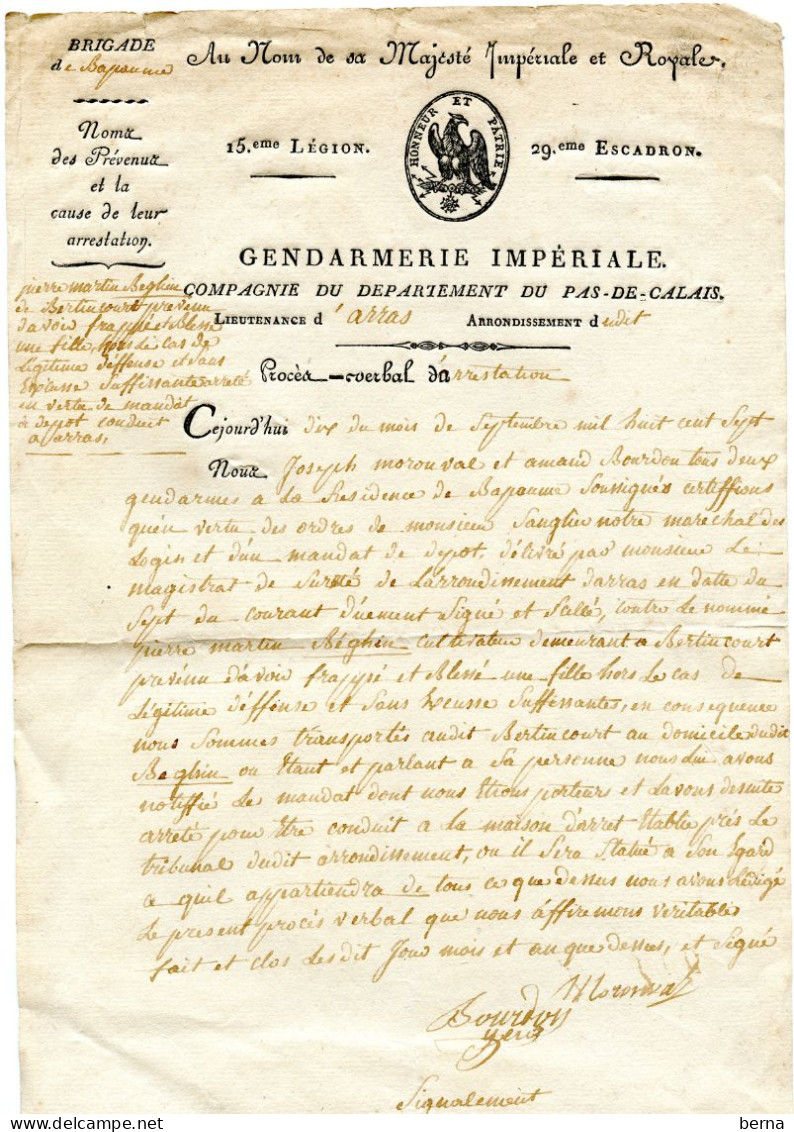 BRIGADE
de Bapaume
Au Nom de sa Majesté Impériale et Royale.
HONNEUR ET PATRIE
15.eme LÉGION.
29.eme ESCADRON.
Noms
des Prévenus
et la
cause de leur
arrestation.
GENDARMERIE IMPÉRIALE.
COMPAGNIE DU DEPARTEMENT DU PAS-DE-CALAIS.
LIEUTENANCE d'arras ARRONDISSEMENT dudit
pierre martin Béghin
de Bertincourt prévenu
d'avoir frappé et Blessé
une fille, hors le cas de
légitime déffense et sans
Excusse Suffissante arreté
en vertu de mandat
de depot conduit
a arras,
Procès-verbal d'arrestation
Cejourd'hui dix du mois de Septembre mil huit cent Sept
Nous Joseph moronval et amand Bourdon tous deux
gendarmes a La Residence de Bapaume Soussignés certiffions
quén vertu des ordres de monsieur Sanglier notre maréchal des
Logis et dun mandat de depot, délivré par monsieur Le
magistrat de Sureté de Larrondissement darras en datte du
Sept du courant düement Signé et Scellé, contre Le nommé
pierre martin Béghin cultivateur demeurant a Bertincourt
prévénu d'avoir frappé et Blessé une fille hors Le cas de
Légitime déffense et Sans Excusse Suffissantes, en consequence
nous Sommes transportés audit Bertincourt au domicile dudit
Beghin ou Etant et parlant a Sa personne nous Lui avons
notiffié Le mandat dont nous Etions porteurs et Lavons desuite
arreté pour Etre conduit a La maison d'arret Etablie prés Le
tribunal dudit arrondissement, ou il Sera Statué a Son Egard
ce quil appartiendra de tous ce que dessus nous avons Redigé
Le present procés verbal que nous áffirmons veritable
fait et clos Lesdit Jour mois et an que dessus, et Signé
Moronval
Bourdon
Signalement
berna